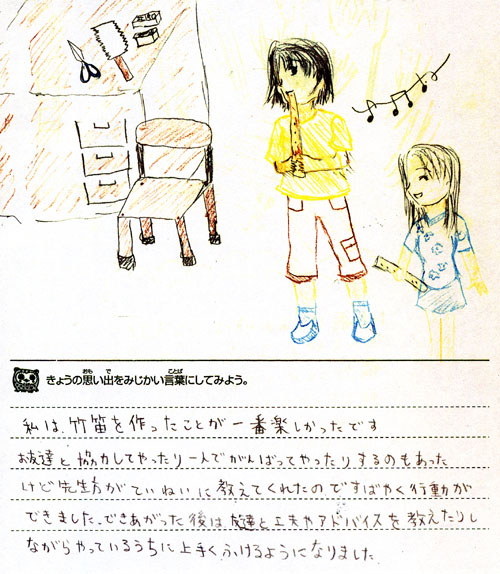 きょうの思い出をみじかい言葉にしてみよう。
私は、竹笛を作ったことが一番楽しかったです
お友達と協力してやったり一人でがんばってやったりするのもあった
けど先生方がていねいに教えてくれたのですばやく行動が
できました。できあがった後は、友達と工夫やアドバイスを教えたりし
ながらやっているうちに上手くふけるようになりました